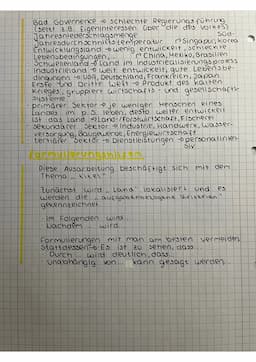 Bad Governance → schlechte Regierungsführung
(setzt z.B. Eigeninteressen über die des Volkes)
Jahresniederschlagsmenge
Jahresdurchschnittstemperatur
Süd-
Singapur, Korea
Entwicklungsland → wenig entwickelt, schlechte
Lebensbedingungen,
China, Mexiko, Brasilien
Schwellenland → Land im Industrialisierungsprozess
Industrieland → weit entwickelt, gute Lebensbe-
dingungen → USA, Deutschland, Frankreich, Japan
Erste und Dritte Welt → Produkt des kalten
Krieges, gruppiere wirtschafts- und gesellschafts-
systeme
primärer Sektor → je weniger Menschen eines
Landes im p.S. leben, desto weiter entwickelt
ist das Land → Land-, Forstwirtschaft, Fischerei
sekundärer Sektor → Industrie, Handwerk, Wasser-
versorgung, Baugewerbe, Energiewirtschaft
tertiärer Sektor → Dienstleistungen → personalinten-
siv
Formulierungshilfen
Diese Ausarbeitung beschäftigt sich mit dem
Thema „xikes"
Zunächst wird „Land" lokalisiert und es
werden die „aufgabenbezogene Strukturen"
gekennzeichnet
Im Folgenden wird...
Nachdem ... wird...
Formulierungen mit man am besten vermeiden
Stattdessen → Es ist zu sehen, dass...
Durch ... wird deutlich, dass...
Unabhängig von ... kann gesagt werden...